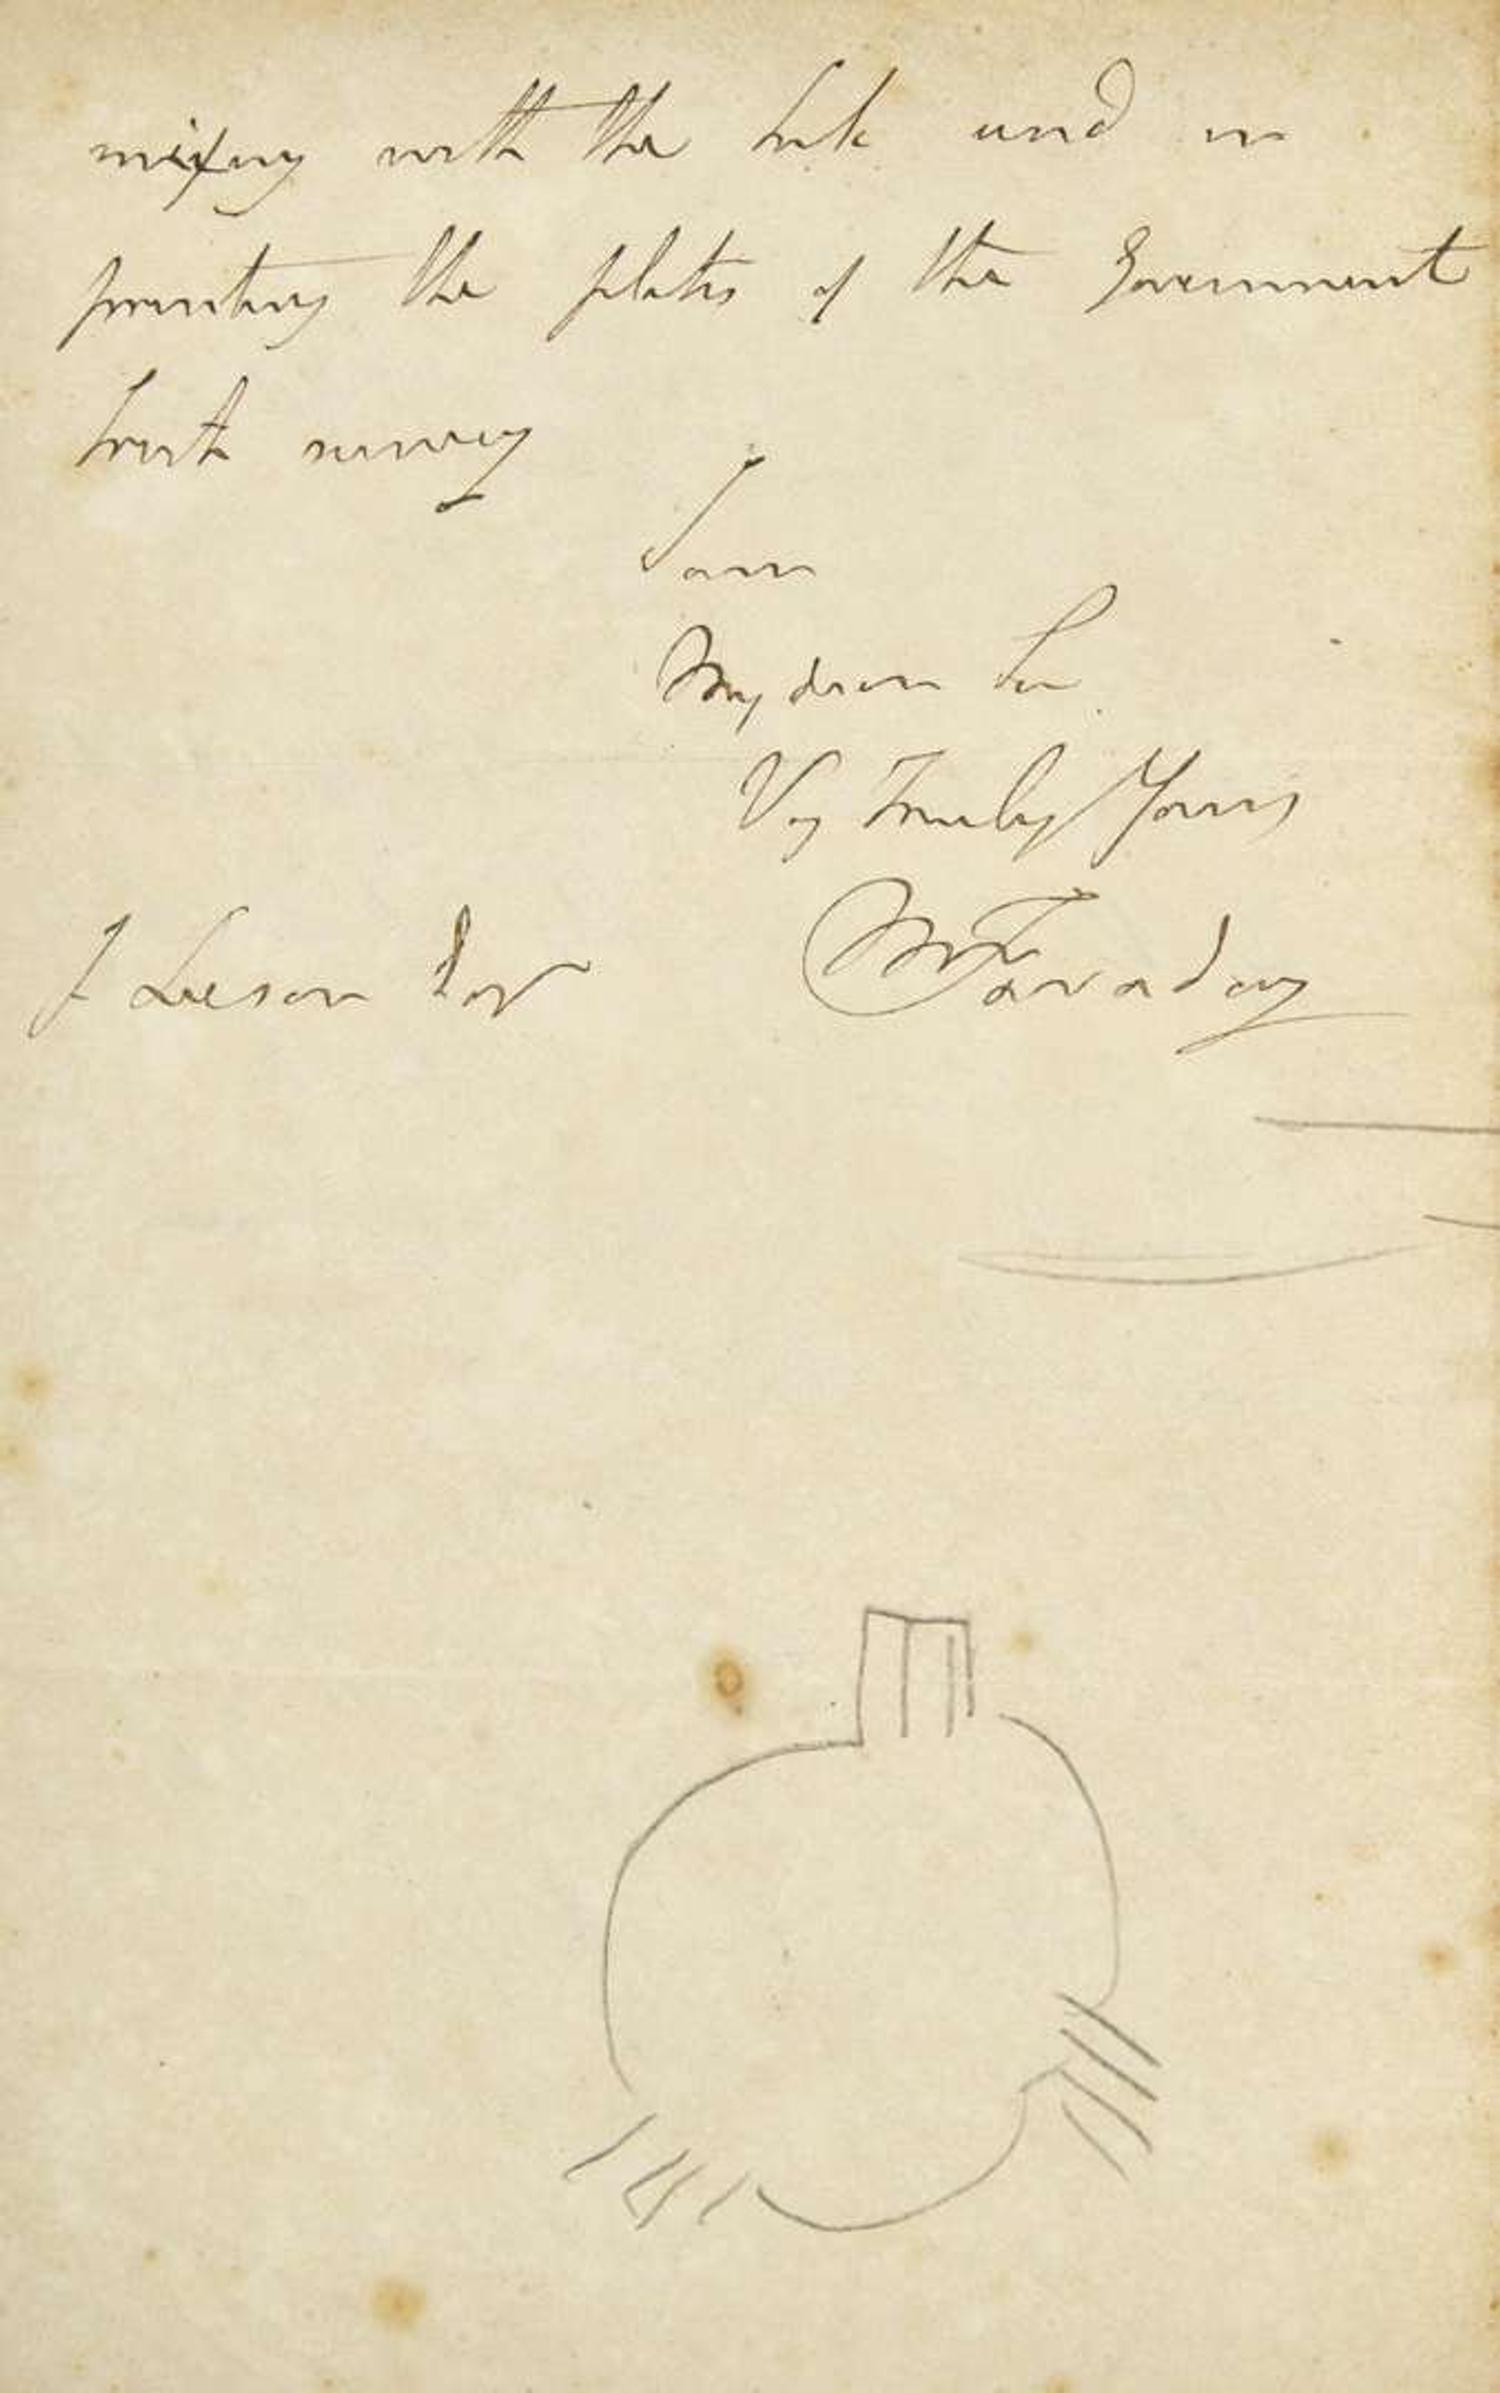 mixing with the Ink and in
printing the plates of the Government
Irish survey
I am
My dear Sir
Vy Truly Yours
M Faraday
J Leeson Esqr